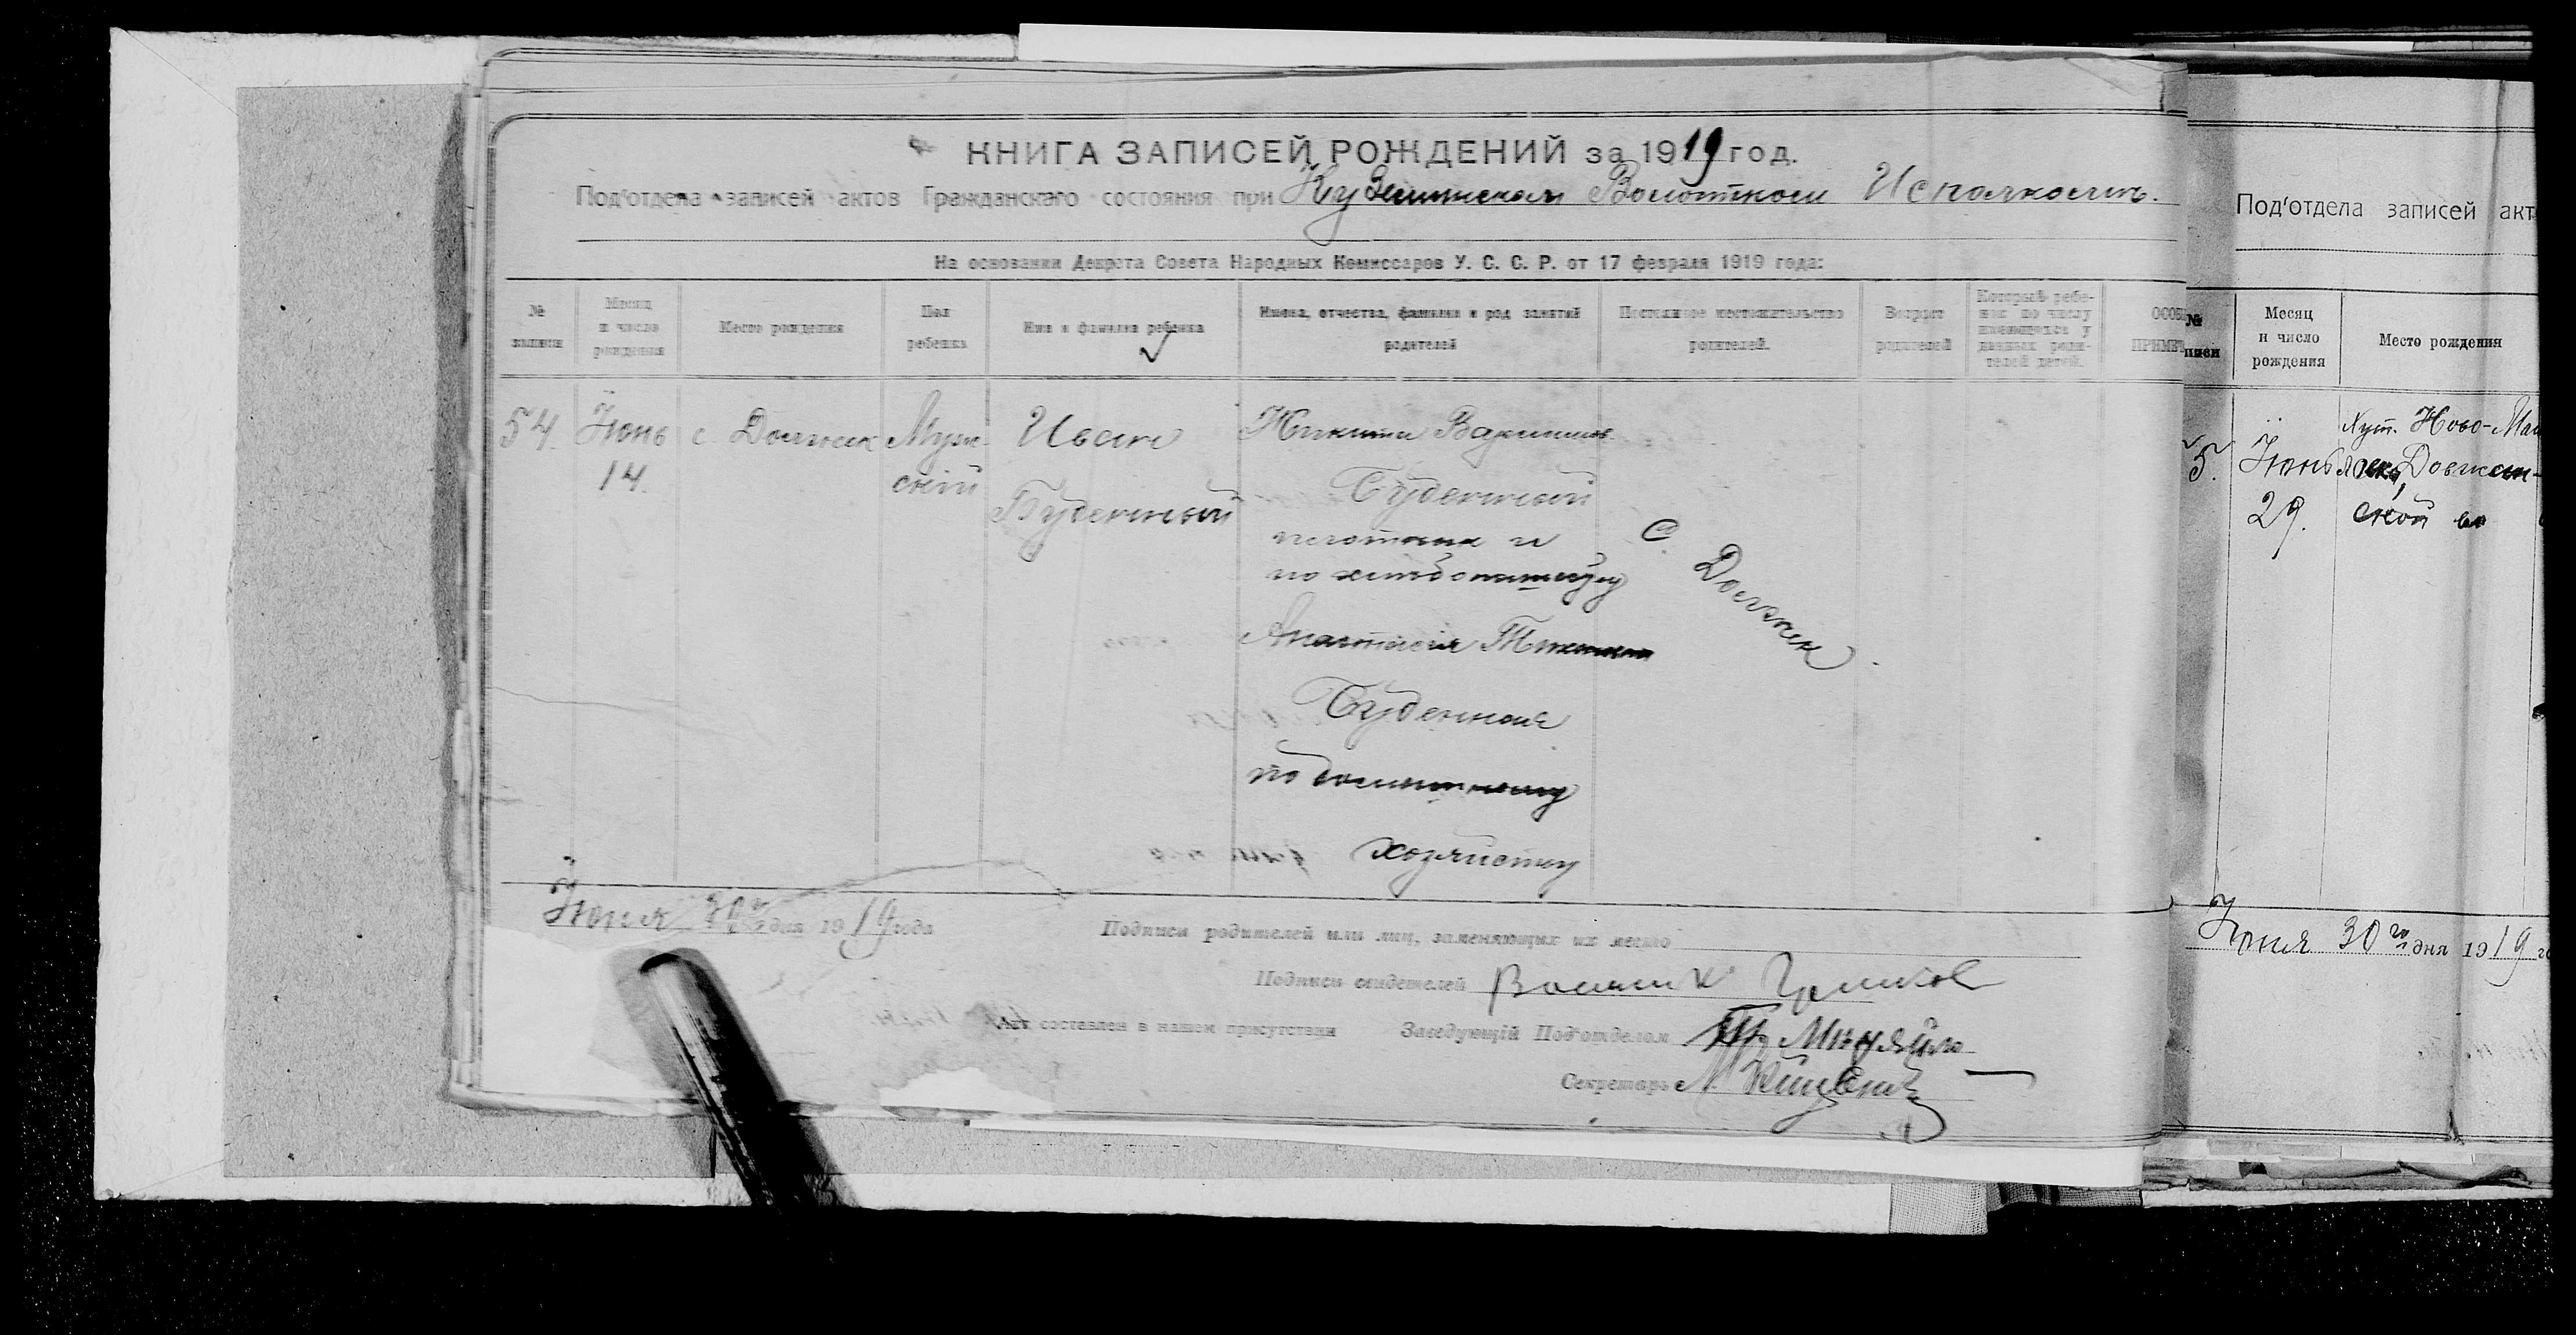 КНИГА ЗАПИСЕЙ РОЖДЕНИЙ за 1919 год.
Под'отдела записей актов Гражданскаго состояния при Волостном Исполкоме.
На основании Декрета Совета Народных Комиссаров У. С. С. Р. от 17 февраля 1919 года:
№ записи
Месяц и число рождения
Место рождения
Пол ребенка
Имя и фамилия ребенка
Имена, отчества, фамилии и род занятий родителей
Постоянное местожительство родителей.
Возраст родителей
Который ребенок по числу имеющихся у данных родителей детей.
54.
Iюнь
14.
с. Должик
Муж-
скiй
Иван
Буденный
Никита
Буденный
плотник и
по хлебопашеству
Анастасiя
Буденная
по домашнему
хозяйству
С. Должик.
Iюня 30го дня 1919 года
Подписи родителей или лиц, заменяющих их место
Подписи свидетелей
Акт составлен в нашем присутствии
Заведующiй Под'отделом Миняйло
Секретарь
Под'отдела записей акт
№ писи
Месяц и число рождения
Место рождения
5.
Iюнь
29.
Хут. Ново-
ской
Iюня 30го дня 1919 г